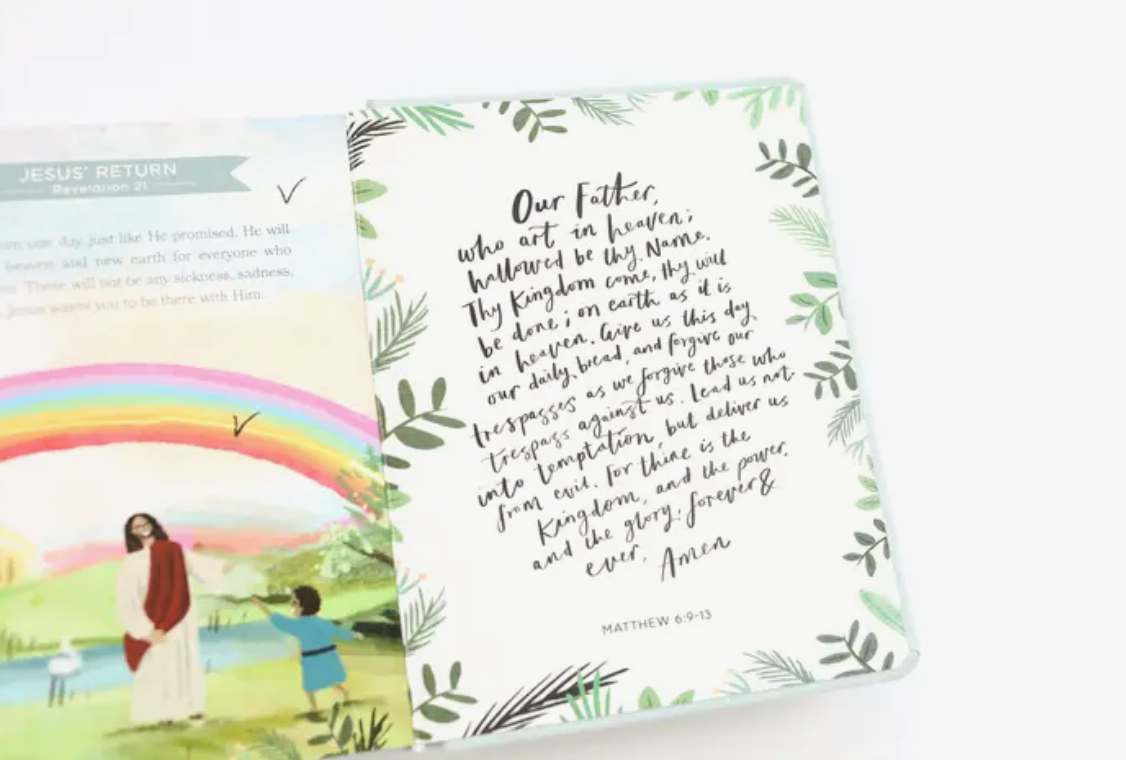 JESUS' RETURN
Revelation 21
one day just like He promised. He will
heaven and new earth for everyone who
There will not be any sickness, sadness,
Jesus wants you to be there with Him.
Our Father,
who art in heaven;
hallowed be thy Name.
Thy Kingdom come, thy will
be done; on earth as it is
in heaven. Give us this day
our daily bread, and forgive our
trespasses as we forgive those who
trespass against us. Lead us not
into temptation, but deliver us
from evil. For thine is the
Kingdom, and the power,
and the glory, forever &
ever, Amen
MATTHEW 6:9-13